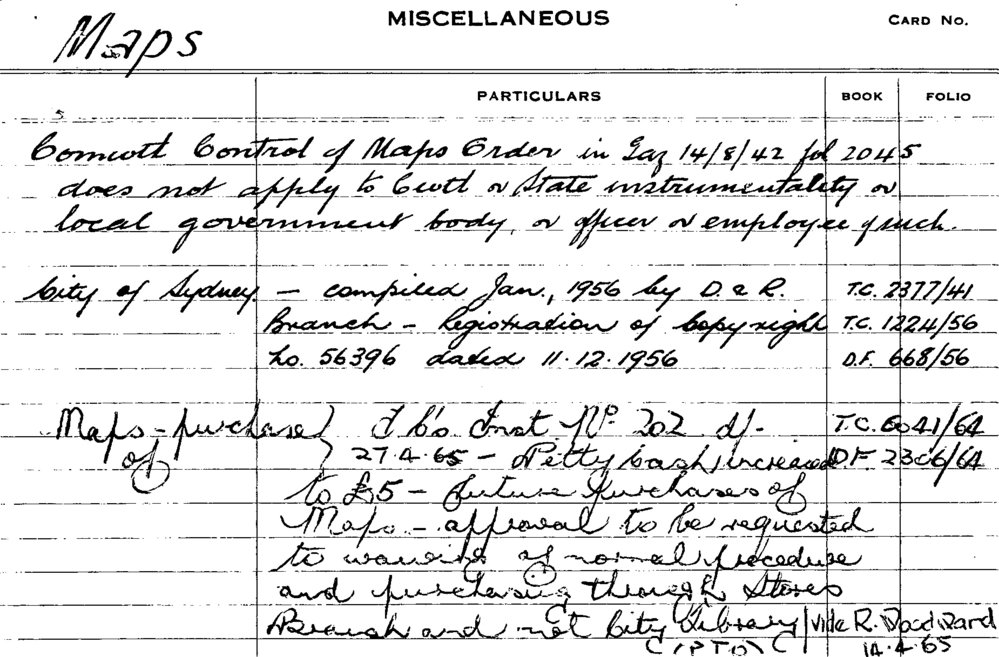 MISCELLANEOUS
CARD NO.
Maps
PARTICULARS
BOOK
FOLIO
Comwlt Control of Maps Order in Gaz 14/8/42 fol 2045
does not apply to Cwlt or State instrumentality or
local government body, or officer or employee of such.
City of Sydney — compiled Jan., 1956 by D. & R. T.C. 2377/41
Branch — Registration of Copyright T.C. 1224/56
No. 56396 dated 11.12.1956 D.F. 668/56
Maps — purchase } T C's Inst. No. 202 d/- T.C. 6041/64
of } 27.4.65 — Petty Cash increased D.F. 2306/64
to £5 — future purchases of
Maps — approval to be requested
to waiving of normal procedure
and purchasing through Stores
Branch and not City Library / vide R. Woodward
14.4.65